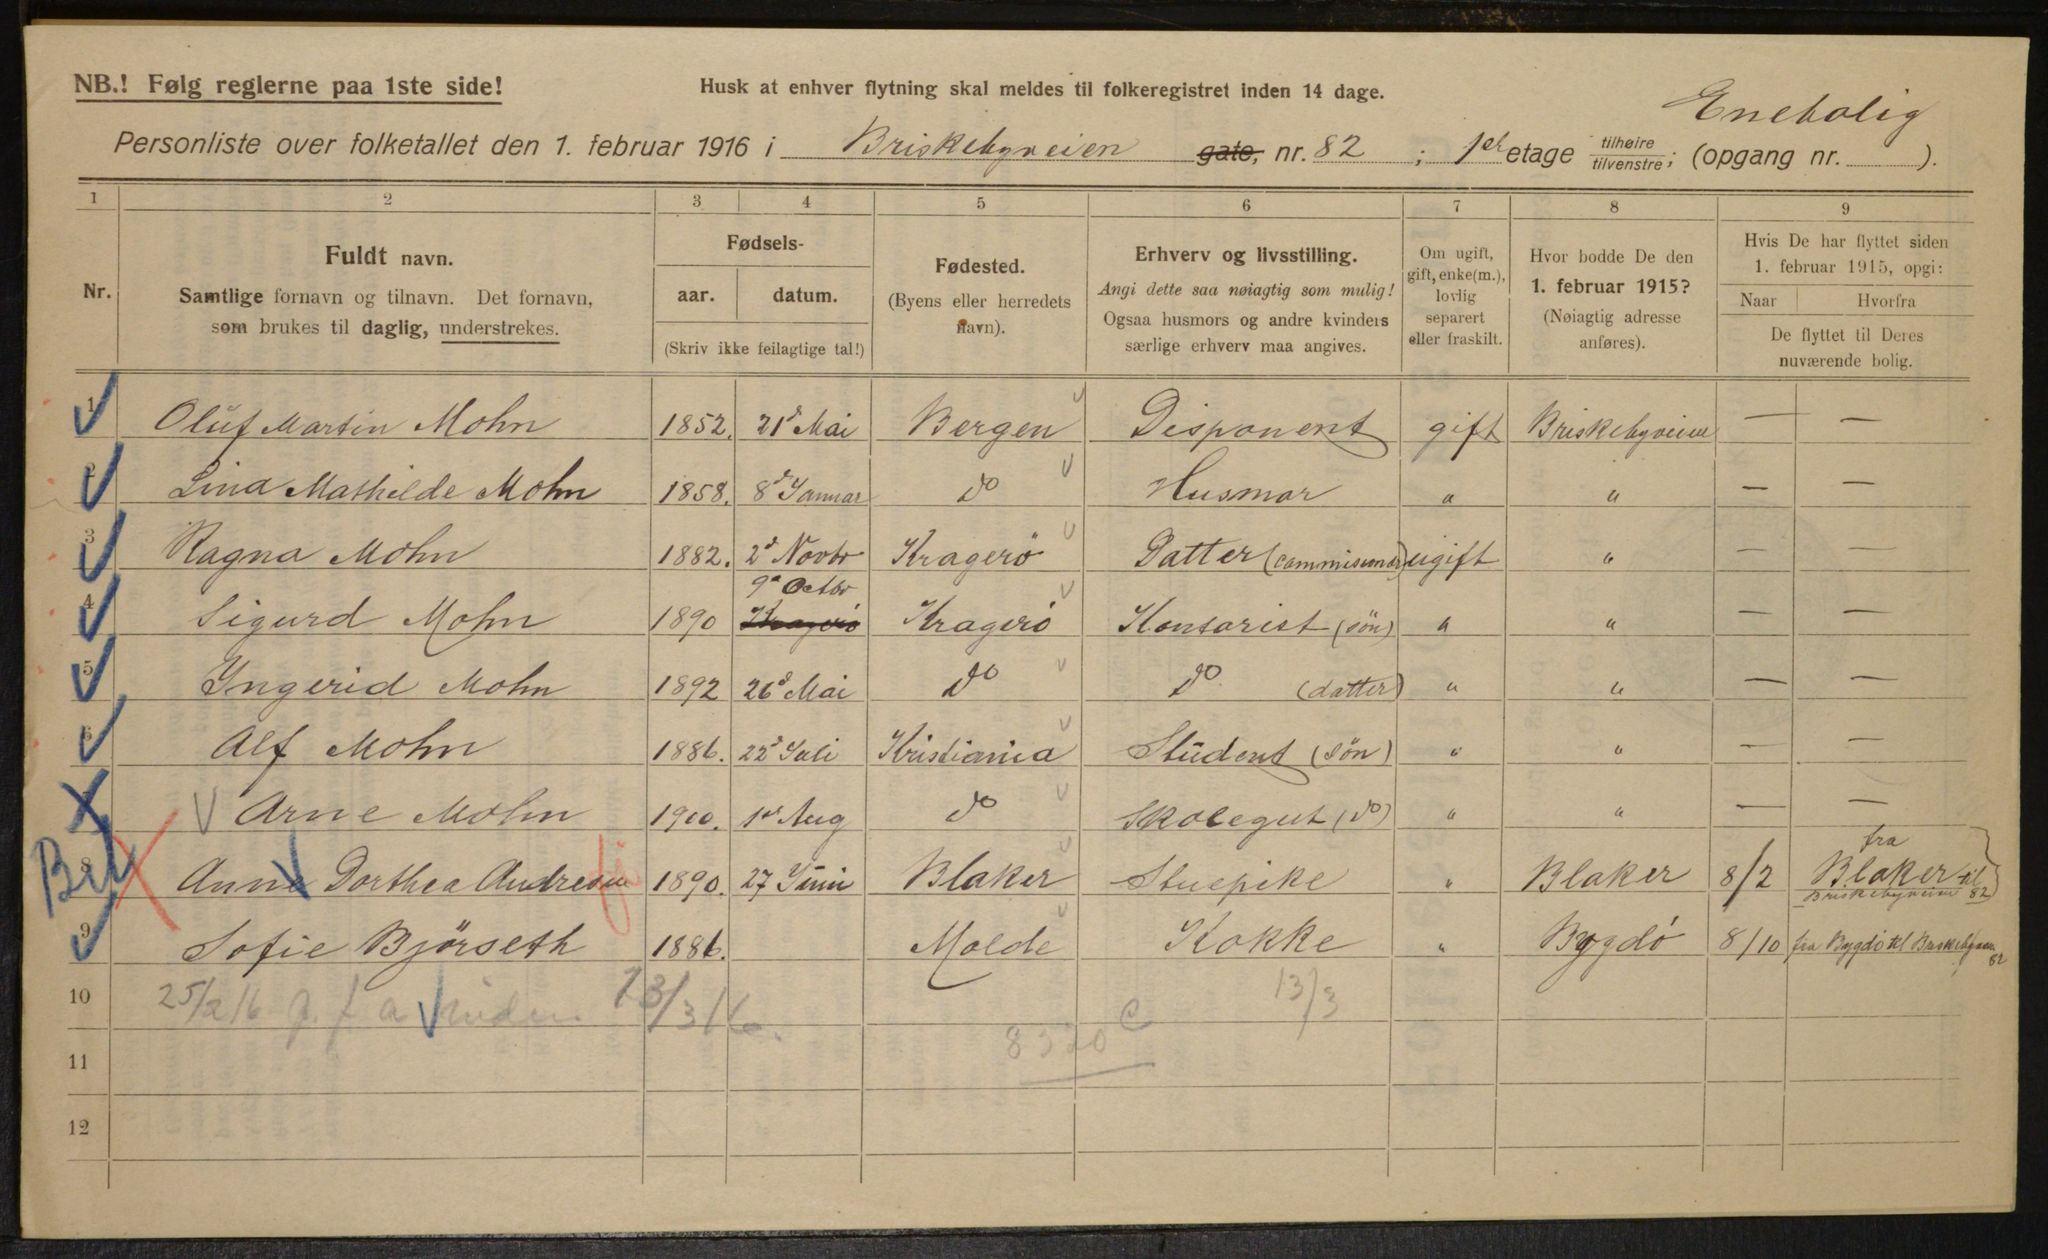 NB.! Følg reglerne paa 1ste side!
Husk at enhver flytning skal meldes til folkeregistret inden 14 dage.
Enebolig
Personliste over folketallet den 1. februar 1916 i Briskebyveien gate, nr. 82 ; 1er etage tilhøire/tilvenstre; (opgang nr. ).
1 2 3 4 5 6 7 8 9
Nr.
Fuldt navn.
Samtlige fornavn og tilnavn. Det fornavn,
som brukes til daglig, understrekes.
Fødsels-
aar. datum.
(Skriv ikke feilagtige tal!)
Fødested.
(Byens eller herredets
navn).
Erhverv og livsstilling.
Angi dette saa nøiagtig som mulig!
Ogsaa husmors og andre kvinders
særlige erhverv maa angives.
Om ugift,
gift, enke(m.),
lovlig
separert
eller fraskilt.
Hvor bodde De den
1. februar 1915?
(Nøiagtig adresse
anføres).
Hvis De har flyttet siden
1. februar 1915, opgi:
Naar Hvorfra
De flyttet til Deres
nuværende bolig.
1 Oluf Martin Mohn 1852. 21d Mai Bergen Disponent gift Briskebyveien — —
2 Lina Mathilde Mohn 1858. 8d Januar do Husmor " " — —
3 Ragna Mohn 1882. 2d Novbr Kragerö Datter ugift " — —
9d Octbr
4 Sigurd Mohn 1890 Kragerö Kragerö Kontorist (sön) " " — —
5 Yngerid Mohn 1892 26d Mai do do (datter) " " — —
6 Alf Mohn 1886. 22d Juli Kristiania Student (sön) " " — —
7 Arne Mohn 1900. 1st Aug do Skolegut (do) " " — —
fra
8 Anne Dorthea Andresen 1890. 27 Juni Blaker Stuepike " Blaker 8/2 Blaker til
Briskebyveien 82
9 Sofie Bjørseth 1886. Molde Kokke " Bygdö 8/10 fra Bygdö til Briskebyveien
82
10 25/2 16 13/3 16. 13/3
8320 C
11
12